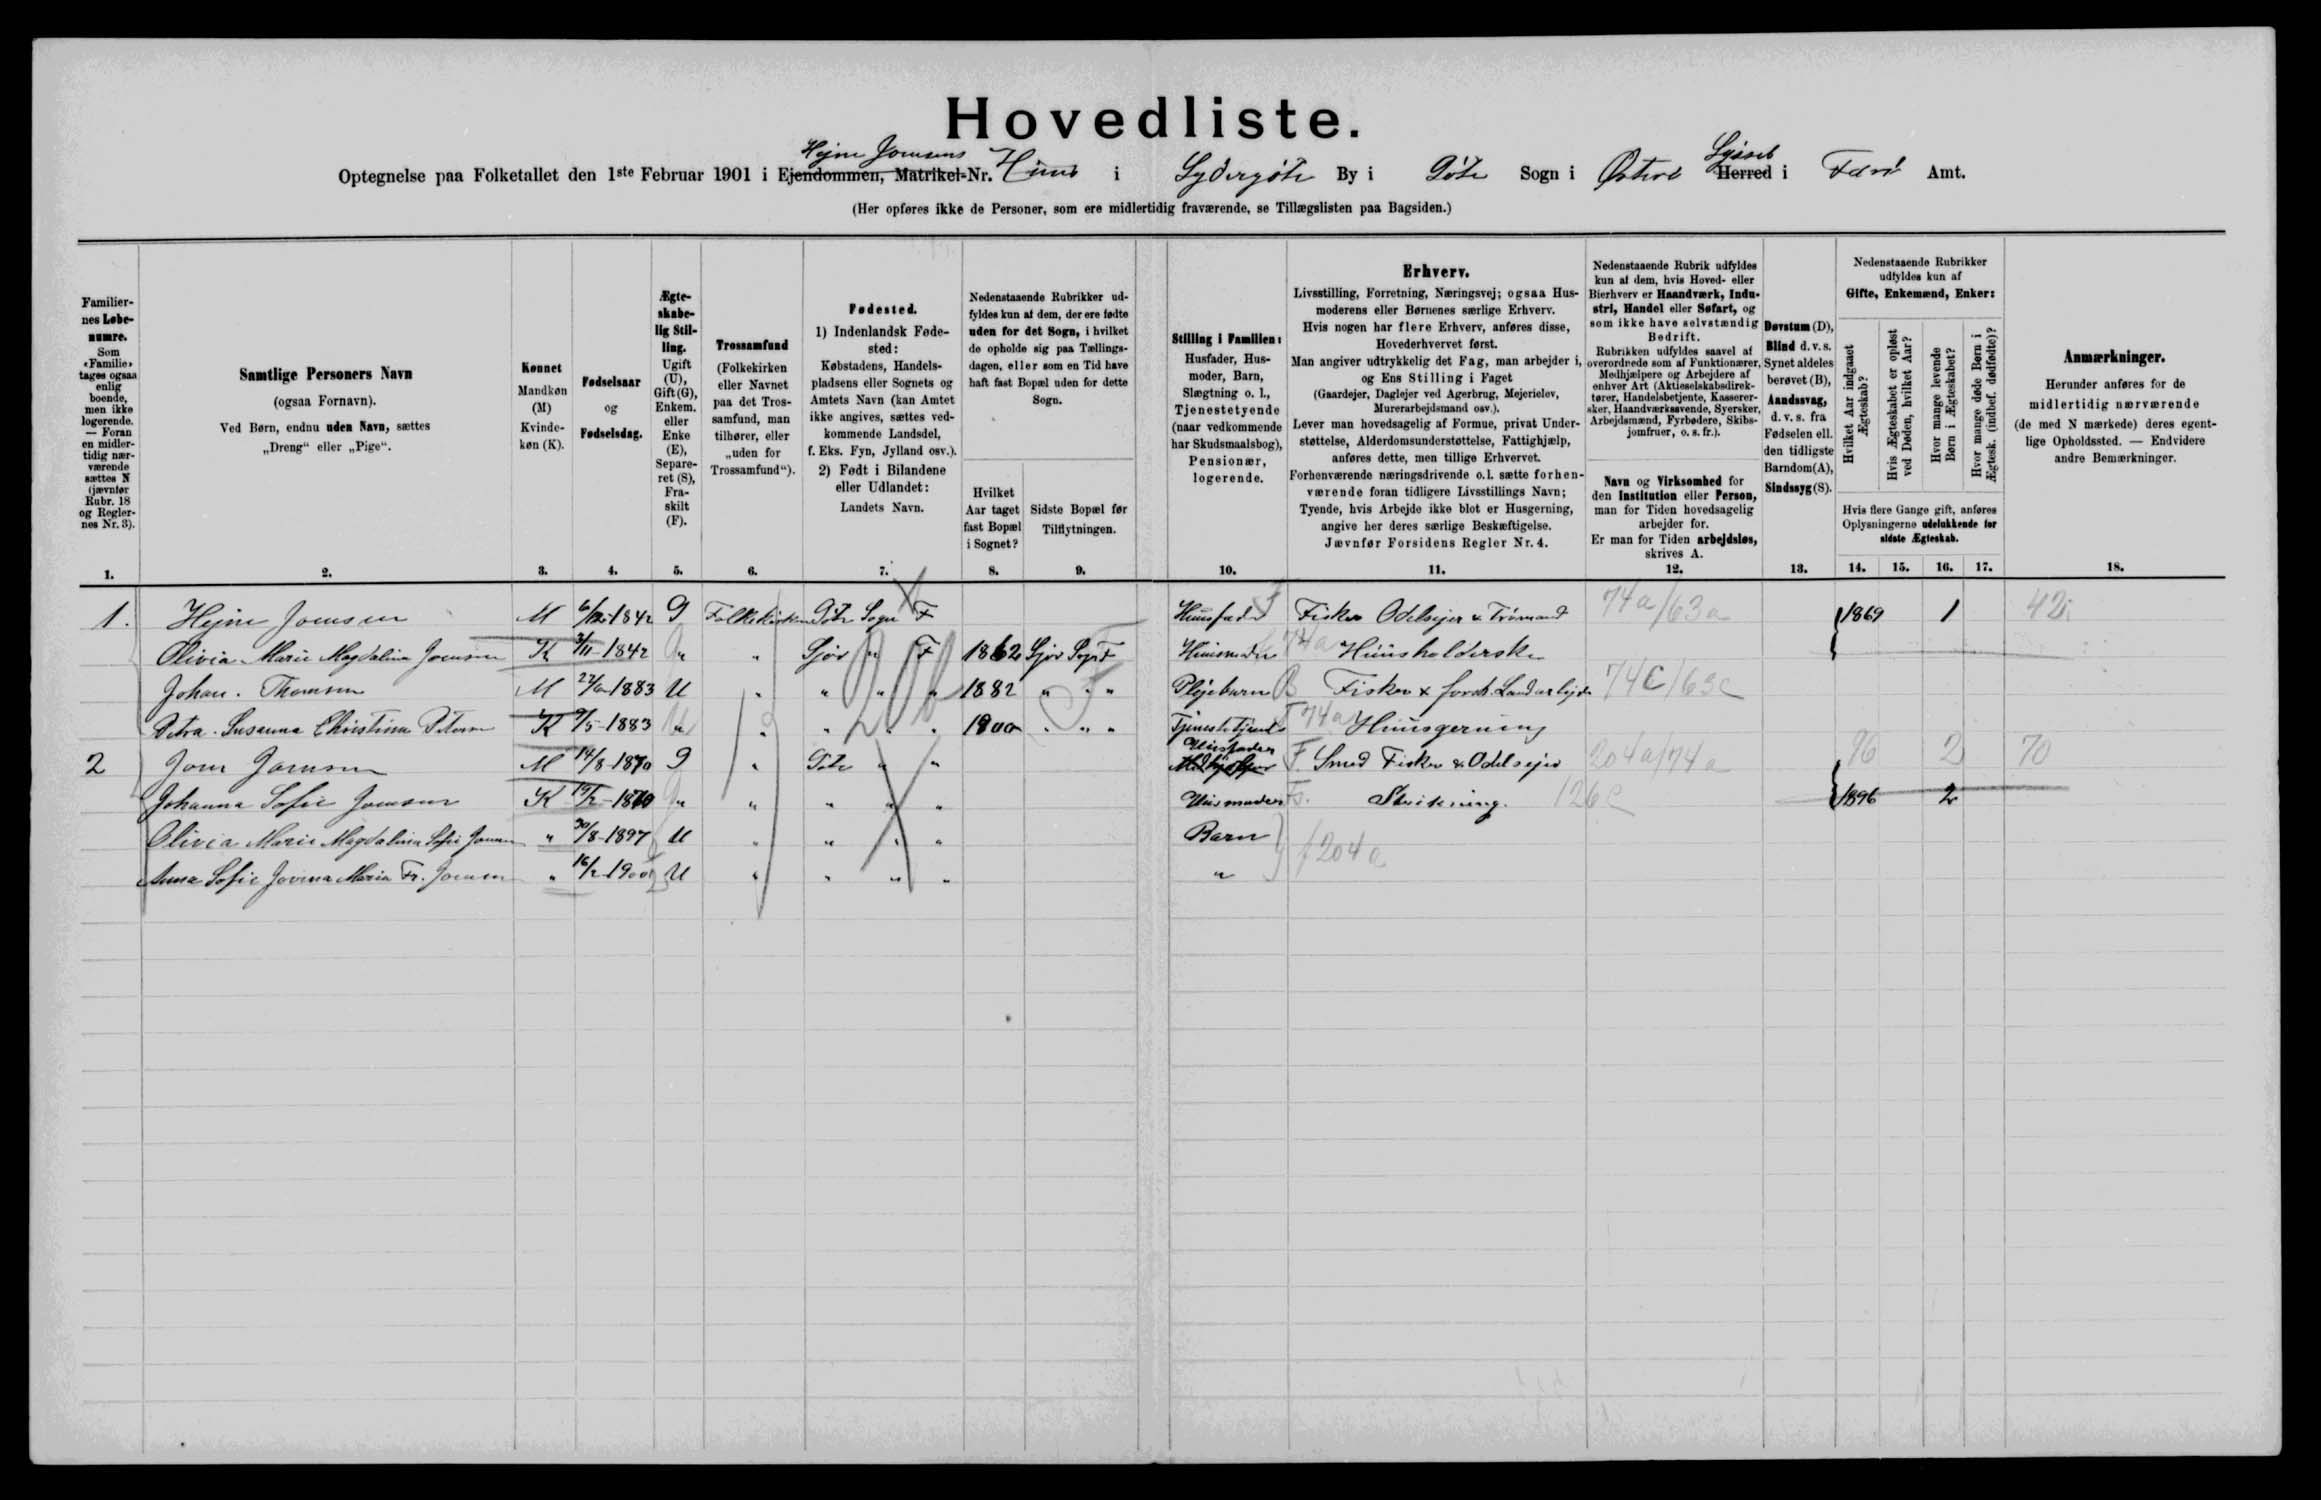 Hovedliste.
Hejne Joensens
Optegnelse paa Folketallet den 1ste Februar 1901 i Ejendommen, Matrikel-Nr. Huus i Sydergøte By i Gøte Sogn i Østerø Syssel Herred i Færø Amt.
(Her opføres ikke de Personer, som ere midlertidig fraværende, se Tillægslisten paa Bagsiden.)
Familiernes Løbenumre.
Som «Familie» tages ogsaa enlig boende, men ikke logerende. — Foran en midlertidig nærværende sættes N (jævnfør Rubr. 18 og Reglernes Nr. 3).
Samtlige Personers Navn
(ogsaa Fornavn).
Ved Børn, endnu uden Navn, sættes
„Dreng“ eller „Pige“.
Kønnet
Mandkøn (M)
Kvindekøn (K).
Fødselsaar
og
Fødselsdag.
Ægteskabelig Stilling.
Ugift (U), Gift (G), Enkem. eller Enke (E), Separeret (S), Fraskilt (F).
Trossamfund
(Folkekirken eller Navnet paa det Trossamfund, man tilhører, eller „uden for Trossamfund“).
Fødested.
1) Indenlandsk Fødested:
Købstadens, Handelspladsens eller Sognets og Amtets Navn (kan Amtet ikke angives, sættes vedkommende Landsdel, f. Eks. Fyn, Jylland osv.).
2) Født i Bilandene eller Udlandet:
Landets Navn.
Nedenstaaende Rubrikker udfyldes kun af dem, der ere fødte uden for det Sogn, i hvilket de opholde sig paa Tællingsdagen, eller som en Tid have haft fast Bopæl uden for dette Sogn.
Hvilket Aar taget fast Bopæl i Sognet?
Sidste Bopæl før Tilflytningen.
Stilling i Familien:
Husfader, Husmoder, Barn, Slægtning o. l., Tjenestetyende (naar vedkommende har Skudsmaalsbog), Pensionær, logerende.
Erhverv.
Livsstilling, Forretning, Næringsvej; ogsaa Husmoderens eller Børnenes særlige Erhverv.
Hvis nogen har flere Erhverv, anføres disse, Hovederhvervet først.
Man angiver udtrykkelig det Fag, man arbejder i, og Ens Stilling i Faget
(Gaardejer, Daglejer ved Agerbrug, Mejerielev, Murerarbejdsmand osv.).
Lever man hovedsagelig af Formue, privat Understøttelse, Alderdomsunderstøttelse, Fattighjælp, anføres dette, men tillige Erhvervet.
Forhenværende næringsdrivende o.l. sætte forhenværende foran tidligere Livsstillings Navn;
Tyende, hvis Arbejde ikke blot er Husgerning, angive her deres særlige Beskæftigelse.
Jævnfør Forsidens Regler Nr. 4.
Nedenstaaende Rubrik udfyldes kun af dem, hvis Hoved- eller Bierhverv er Haandværk, Industri, Handel eller Søfart, og som ikke have selvstændig Bedrift.
Rubrikken udfyldes saavel af overordnede som af Funktionærer, Medhjælpere og Arbejdere af enhver Art (Aktieselskabsdirektører, Handelsbetjente, Kasserersker, Haandværkssvende, Syersker, Arbejdsmænd, Fyrbødere, Skibsjomfruer, o. s. fr.).
Navn og Virksomhed for den Institution eller Person, man for Tiden hovedsagelig arbejder for.
Er man for Tiden arbejdsløs, skrives A.
Døvstum (D), Blind d. v. s. Synet aldeles berøvet (B), Aandssvag, d. v. s. fra Fødselen ell. den tidligste Barndom (A), Sindssyg (S).
Nedenstaaende Rubrikker udfyldes kun af
Gifte, Enkemænd, Enker:
Hvilket Aar indgaaet Ægteskab?
Hvis Ægteskabet er opløst ved Døden, hvilket Aar?
Hvor mange levende Børn i Ægteskabet?
Hvor mange døde Børn i Ægtesk. (indbef. dødfødte)?
Hvis flere Gange gift, anføres Oplysningerne udelukkende for sidste Ægteskab.
Anmærkninger.
Herunder anføres for de midlertidig nærværende (de med N mærkede) deres egentlige Opholdssted. — Endvidere andre Bemærkninger.
1. 2. 3. 4. 5. 6. 7. 8. 9. 10. 11. 12. 13. 14. 15. 16. 17. 18.
1. Hejne Joensen M 1842 G Folkekirken Gøte Sogn F Huusfader Fisker Odelsejer & 74a/63a 1869 1 42
Olivia Marie Magdalina Joensen K 3/11-1842 " " Sjov " F 1862 Sjov Sogn F Huusmoder 74a Huusholderske
Johan. Thomsen M 1883 U " " " " 1882 " " " Plejebarn B Fisker & Landarbejder 74C/63c
Petra Susanna Christina Petersen K 9/5-1883 " " " " " 1900 " " " Tjenestetyende T 74a Huusgerning
2 Joen Joensen M 14/8-1870 G " Gøte " " Huusfader F. Smed Fisker & Odelsejer 204a/74a 96 2 70
Johanna Sofie Joensen K 19/2-1870 " " " " " Huusmoder Strikning. 126c 1896 2
Olivia Marie Magdalina Sofie Joensen " 30/8-1897 U " " " " Barn f 204a
Anna Sofie Jovina Maria Fr. Joensen " 16/2-1900 U " " " " "